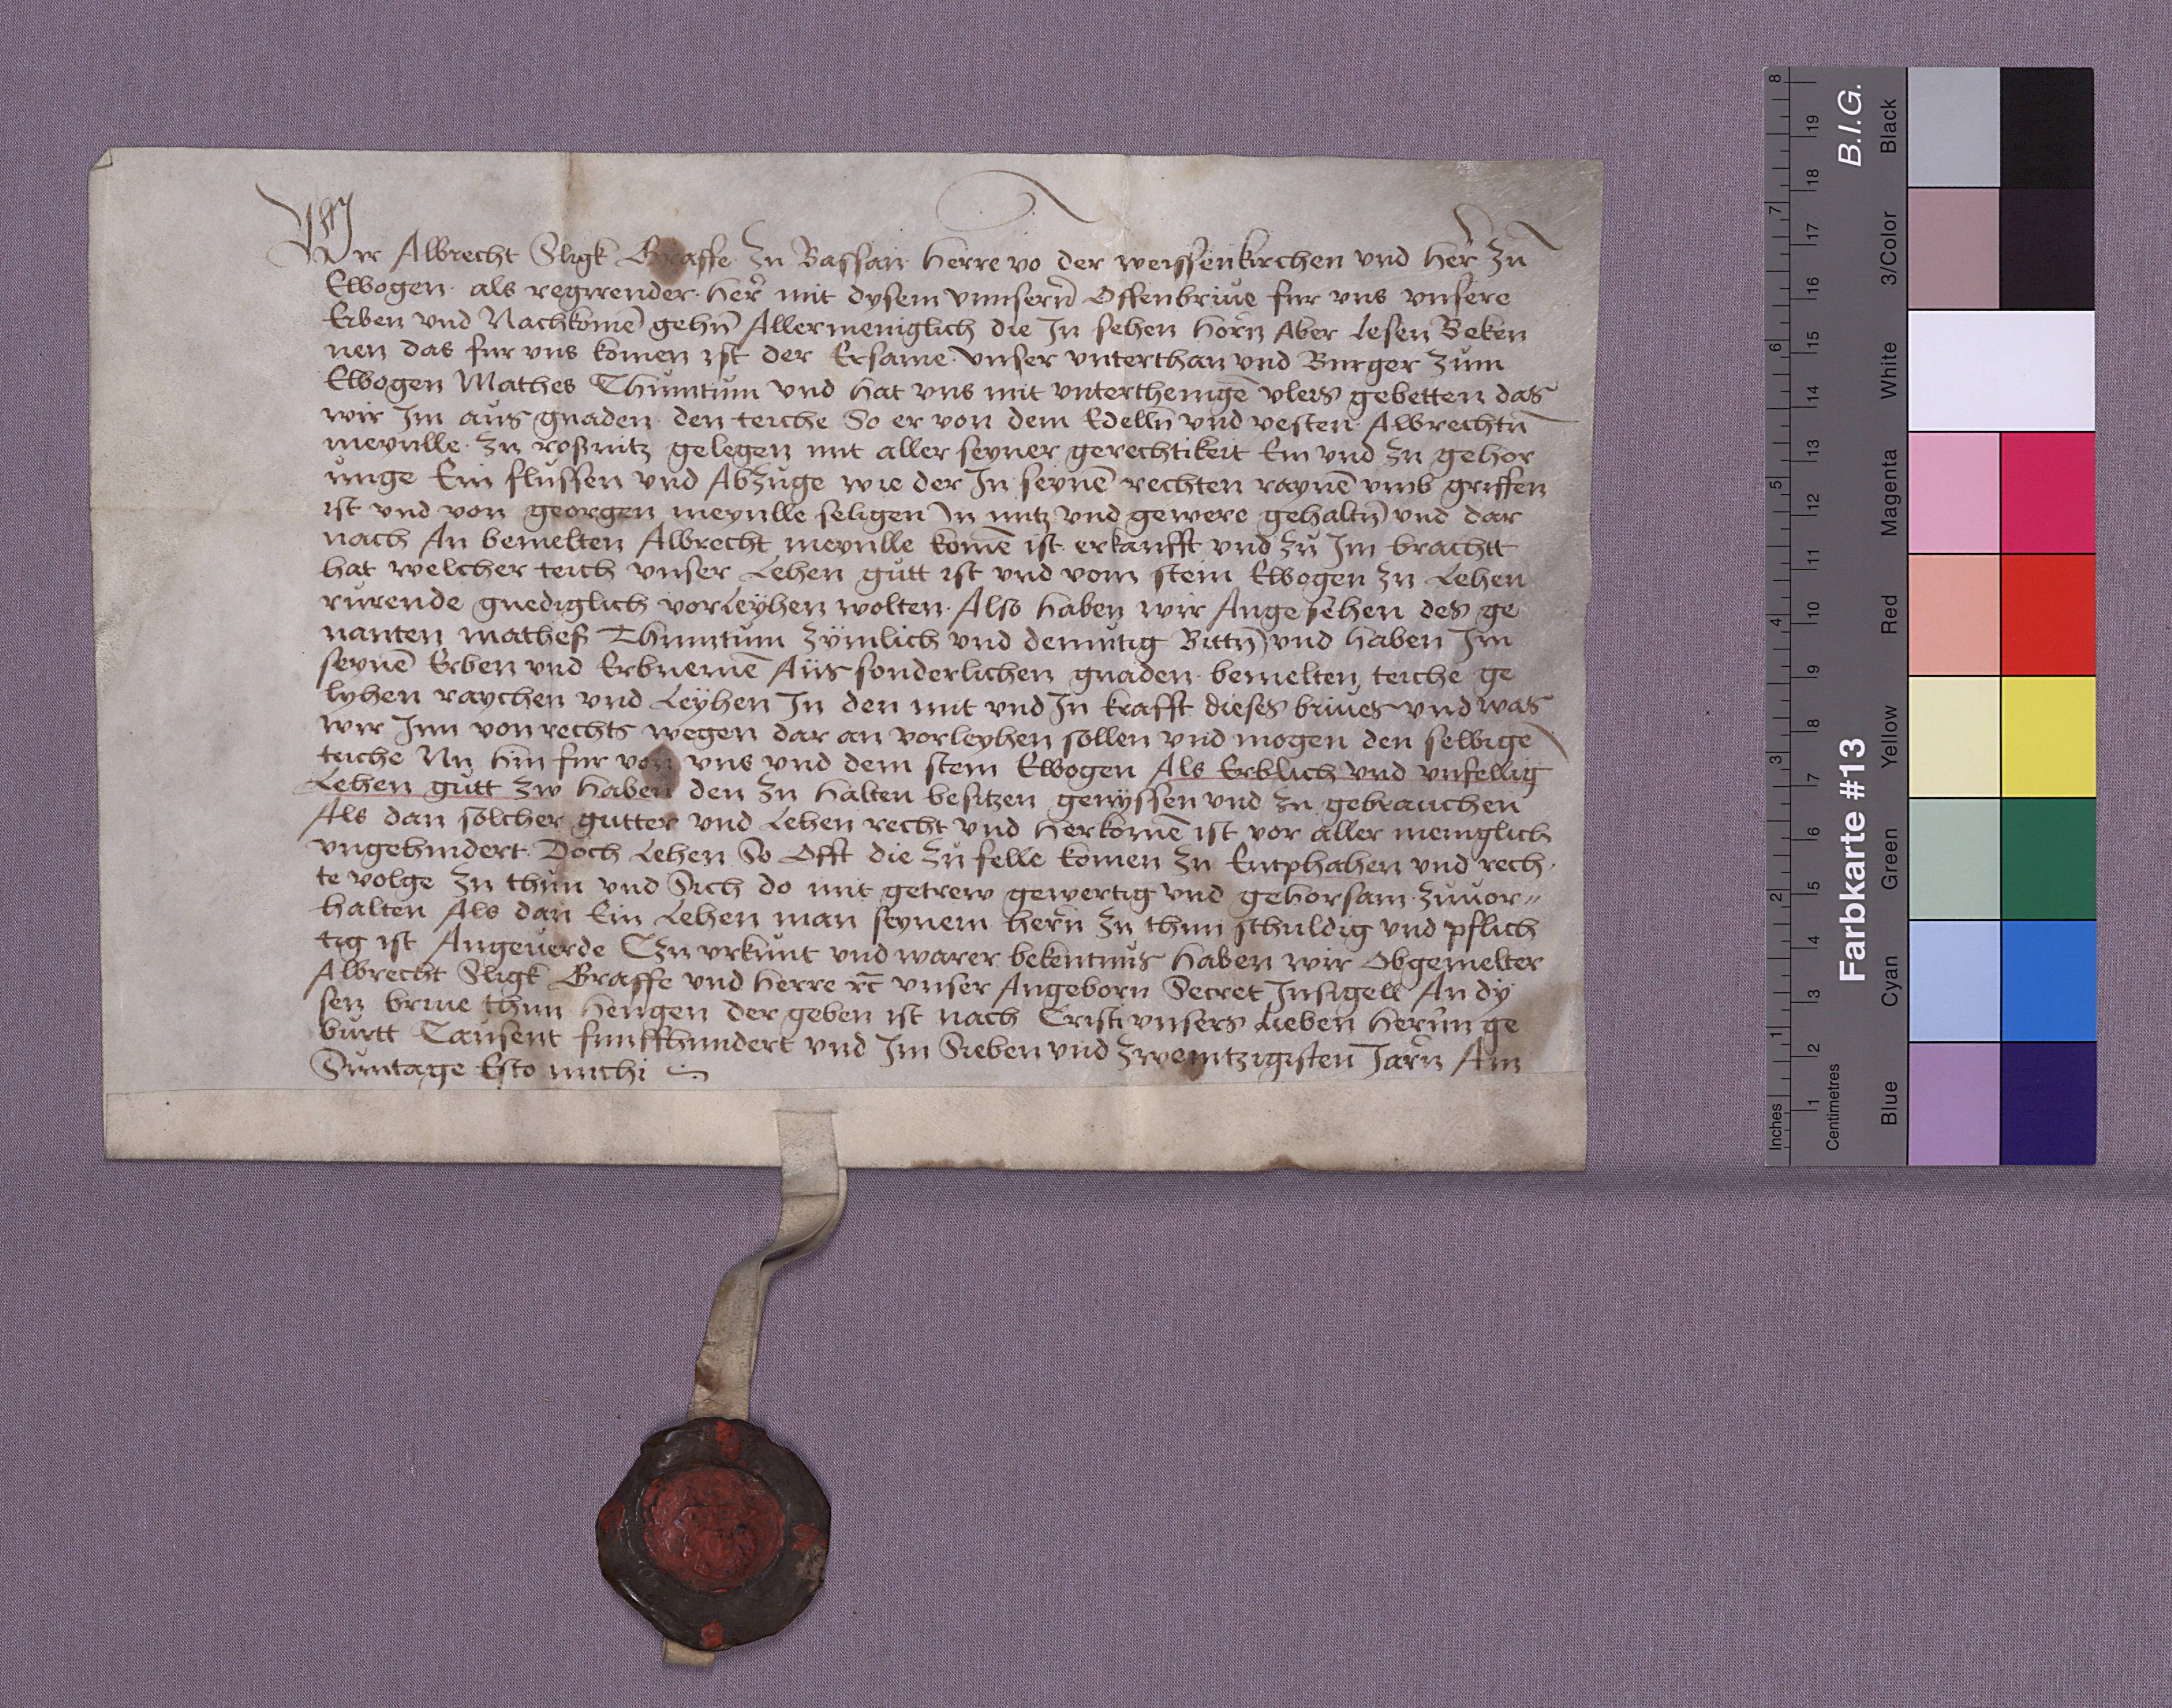 Wir Albrecht Sligk Graffe zu Bassan Herre vo der weissenkirchen vnd Her zu
Elbogen als regirender Her mit dysem vnnsern Offenbriue fur vns vnsere
Erben vnd Nachkomē gehn Allermeniglich die In sehen horn Aber Lesen Beken
nen das fur vns komen ist der Ersame vnser vnterthan vnd Burger zum
Elbogen Mathes Thumtum vnd hat vns mit vnterthenigē vleis gebetten das
wir Im aus gnaden den teiche So er von dem Edelln vnd vesten Albrechtn
meynlle zu roßnitz gelegen mit aller seyner gerechtikeit Ein vnd zu gehor
unge Ein flussen vnd Abzuge wie der In seynē rechten raynē vmb griffen
ist vnd von georgen meynlle seligen In nutz vnd gewere gehaltn vnd dar
nach An bemelten Albrecht meynlle komē ist erkaufft vnd zu Im brachtt
hat welcher teich vnser Lehen gutt ist vnd vom stein Elbogen zu Lehen
rurende gnediglich vorleyhen wolten Also haben wir Angesehen des ge
nanten mathes Thumtum zymlich vnd demutig Bittn vnd haben Im
seynē Erben vnd Erbnemē Aus sonderlichen gnaden bemelten teiche ge
lyhen raychen vnd Leyhen In den mit vnd In krafft dieses briues vnd was
wir Im von rechts wegen dar an vorleyhen sollen vnd mogen den selbige
teiche Nu hin fur von vns vnd dem stein Elbogen Als Erblich vnd vnfellig
Lehen gutt zw haben den zu halten besitzen genyssen vnd zu gebrauchen
Als dan solcher gutter vnd Lehen recht vnd herkomē ist vor aller meniglich
vngehindert Doch Lehen So Offt die zu felle komen zu Entphahen vnd rech
te volge zu thun vnd Sich do mit getrew gewertig vnd gehorsam zuuor
halten Als dan Ein Lehen man seynem hern zu thun schuldig vnd pflich
tig ist Angeuerde Czu vrkunt vnd warer bekentnus haben wir Obgemelter
Albrecht Sligk Graffe vnd Herre rc vnser Angeborn Secret Insigell An dy
sen briue thun hengen der geben ist nach Cristi vnsers Lieben Hernn ge
burtt Tausent funffhundert vnd Im Sieben vnd zwentzigisten Jarn Am
Suntage Esto michi
Inches
Centimetres
1 2 3 4 5 6 7 8
1 2 3 4 5 6 7 8 9 10 11 12 13 14 15 16 17 18 19
Farbkarte #13
B.I.G.
Blue
Cyan
Green
Yellow
Red
Magenta
White
3/Color
Black